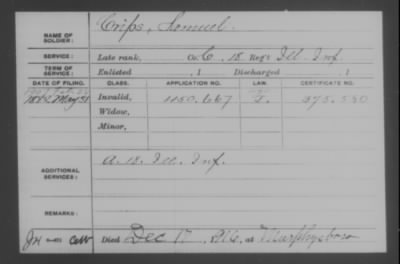 NAME OF SOLDIER: Crips, Samuel.
SERVICE: Late rank, Co. C, 18 Reg't Ill. Inf.
TERM OF SERVICE: Enlisted , 1 Discharged , 1
DATE OF FILING. CLASS. APPLICATION NO. LAW. CERTIFICATE NO.
May 31 Invalid, 1150.667 I. 975.530
Widow,
Minor,
ADDITIONAL SERVICES: A. 18. Ill. Inf.
REMARKS:
Died Dec 17, 1916, at Murphysboro